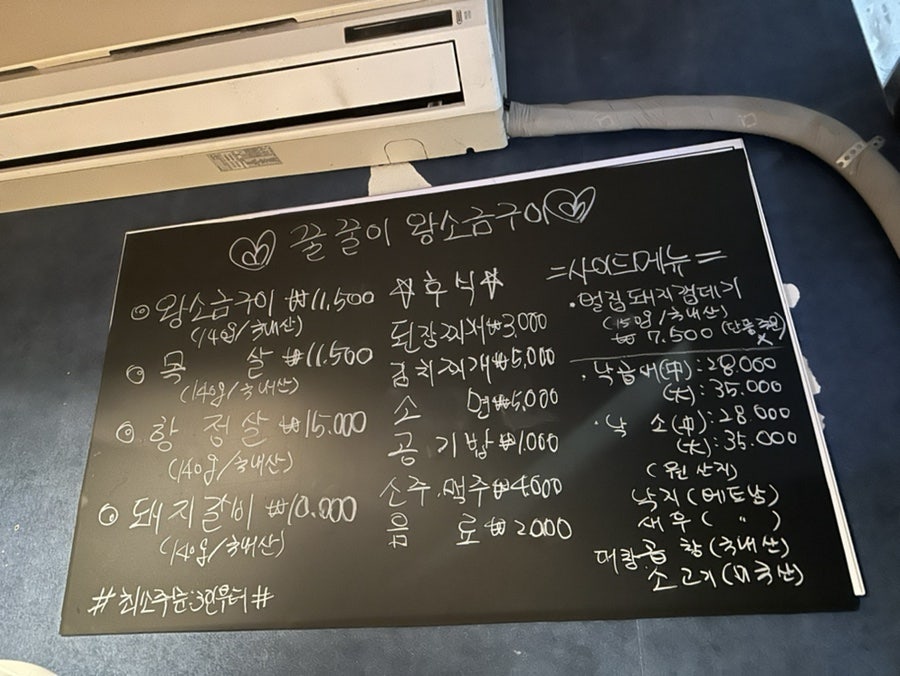 꿀꿀이 왕소금구이
왕소금구이 ₩11,500
(140g/국내산)
목 살 ₩11.500
(140g/국내산)
항 정 살 ₩15.000
(140g/국내산)
돼지갈비 ₩10.000
(140g/국내산)
#최소주문:3인부터#
후식
된장찌개₩3,000
김치찌개₩5,000
소 면₩5,000
공 기 밥₩1,000
소주.맥주₩4000
음 료₩2000
=사이드메뉴=
.벌집돼지껍데기
(150g/국내산)
₩7.500 (단품주문X)
.낙곱새(中):28.000
(大):35.000
.낙 소(中):28.000
(大):35.000
(원산지)
낙지(베트남)
새우( " )
대창곱창(국내산)
소고기(미국산)